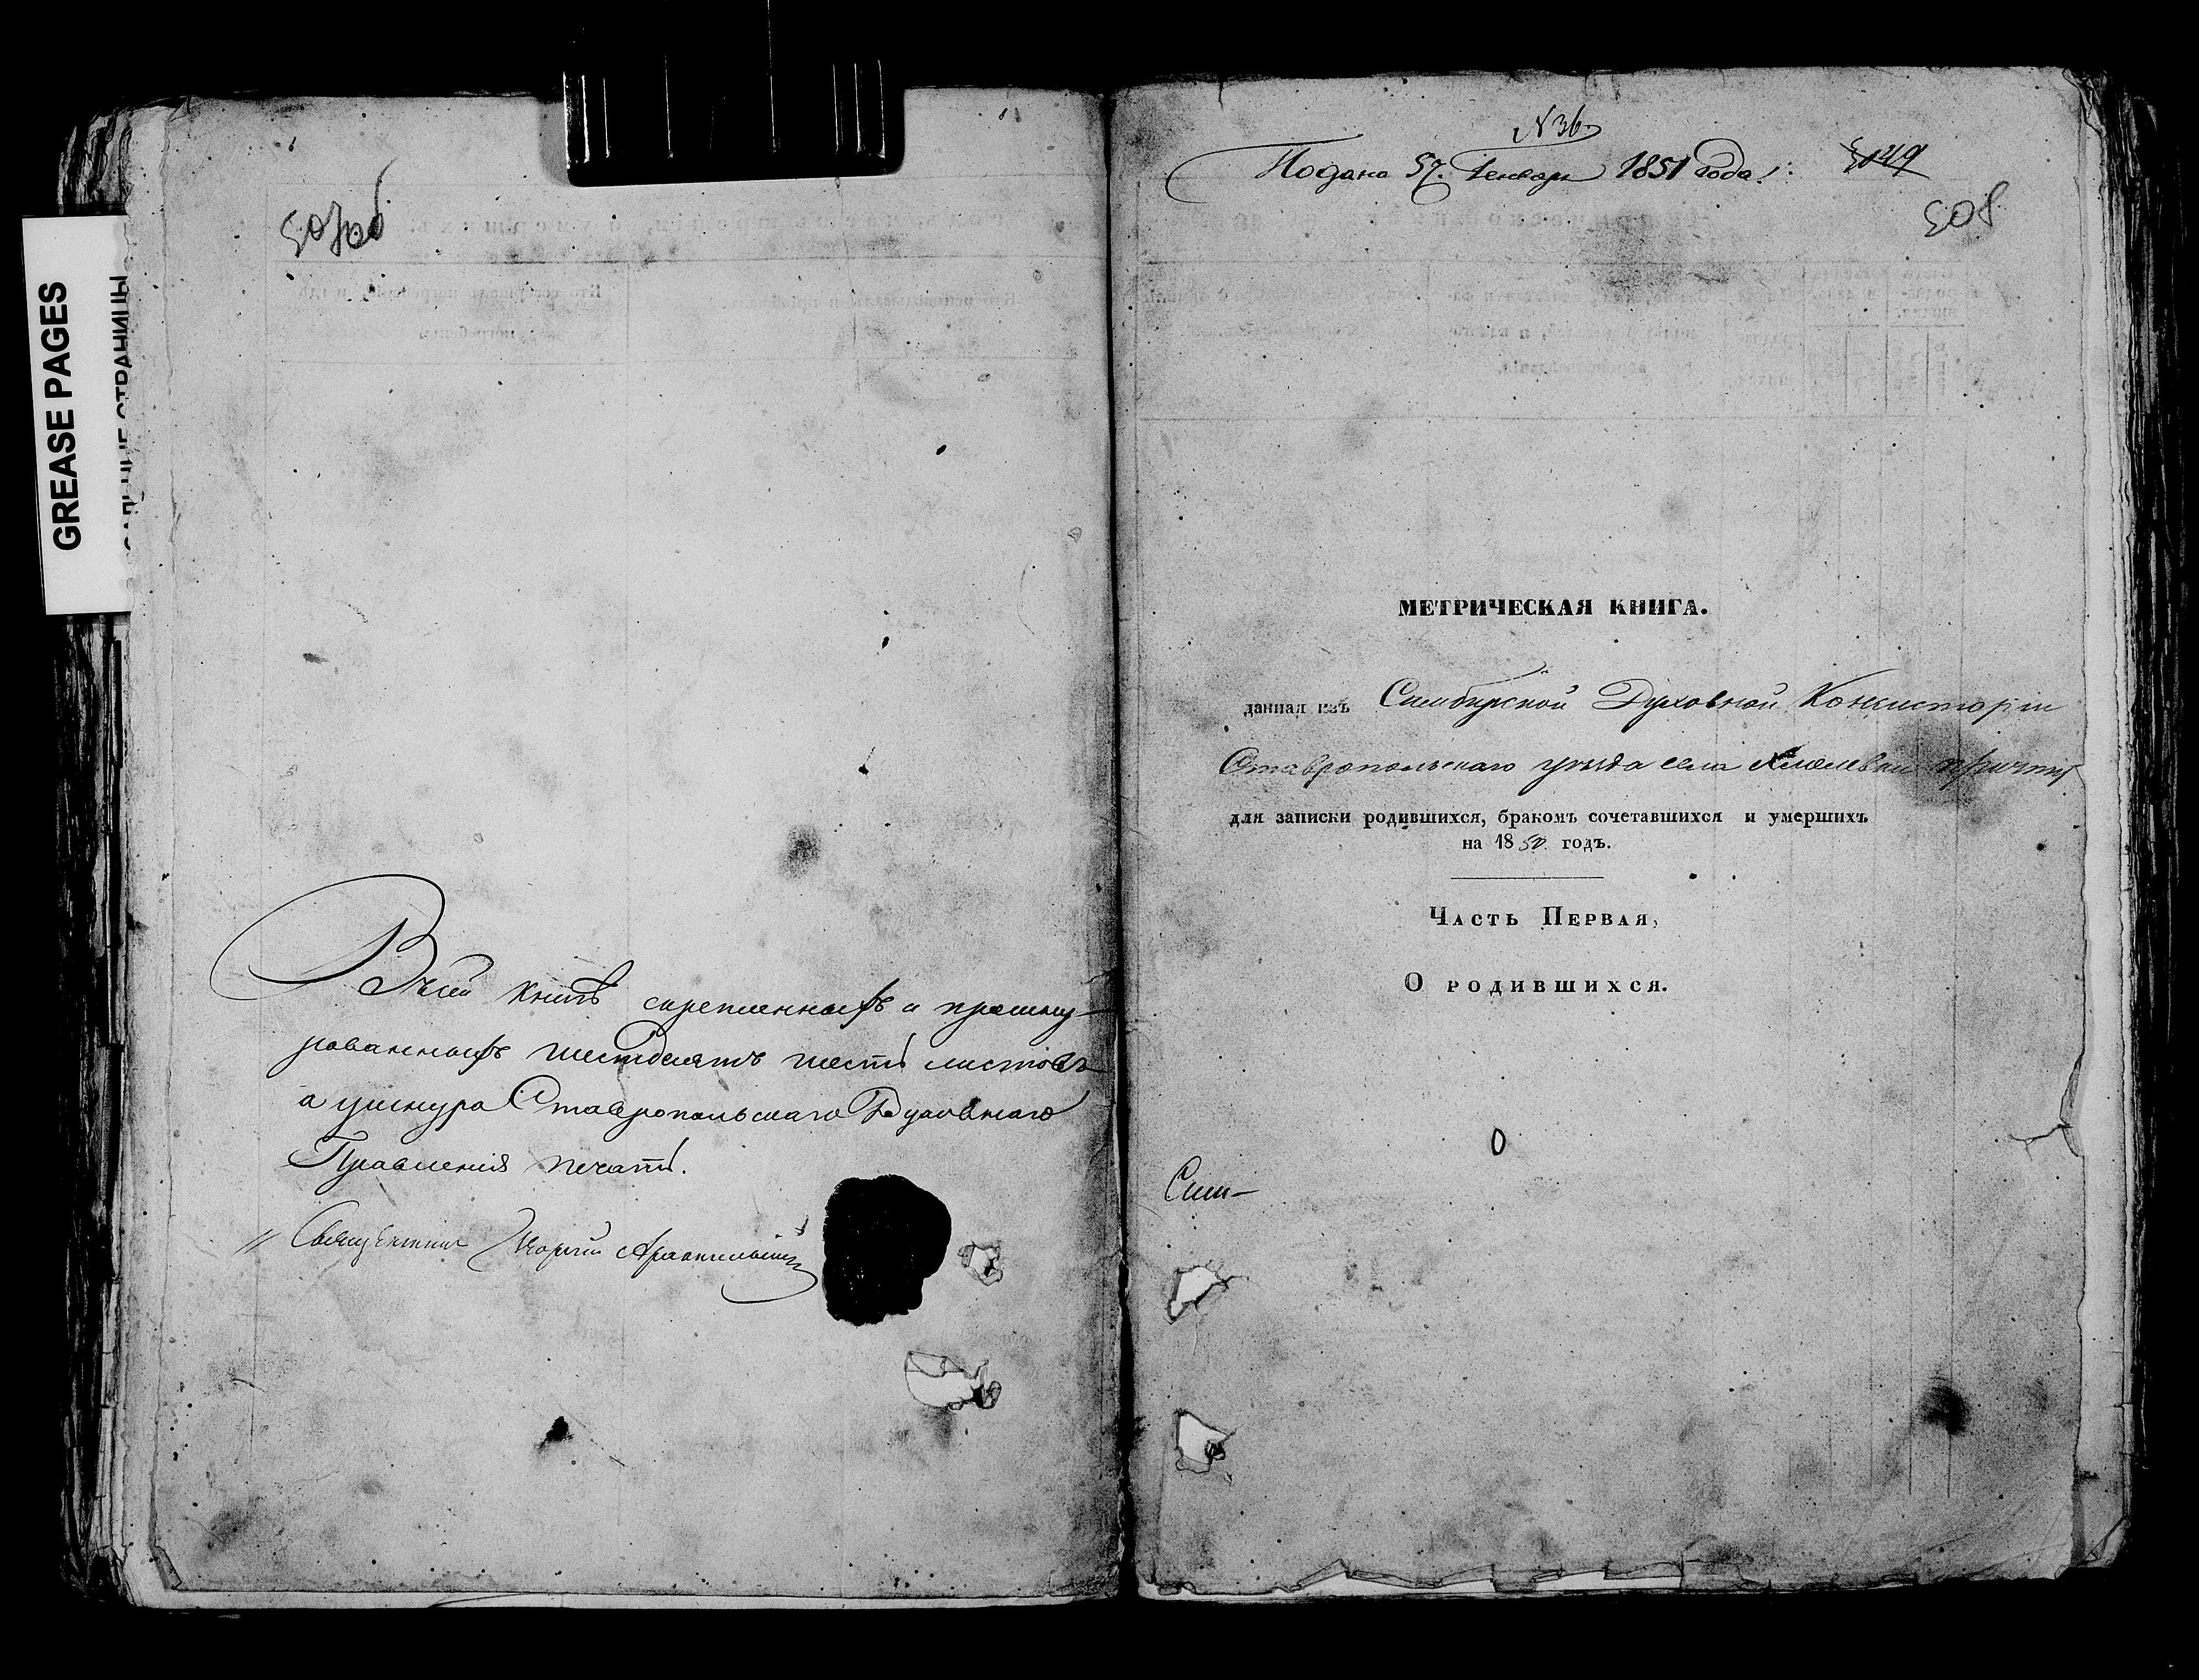 GREASE PAGES
507об
Въ сей книгѣ скрепленныхъ и прошну-
рованныхъ шестдесятъ шесть листовъ
а у шнура Ставропольскаго Духовнаго
Правленія печать.
Священникъ
N 36
Подана Января 1851 года.
508
МЕТРИЧЕСКАЯ КНИГА.
данная изъ Симбирской Духовной Консисторіи
Ставропольскаго уѣзда села причту
для записки родившихся, бракомъ сочетавшихся и умершихъ
на 1850 годъ.
Часть Первая,
О родившихся.
Сим-